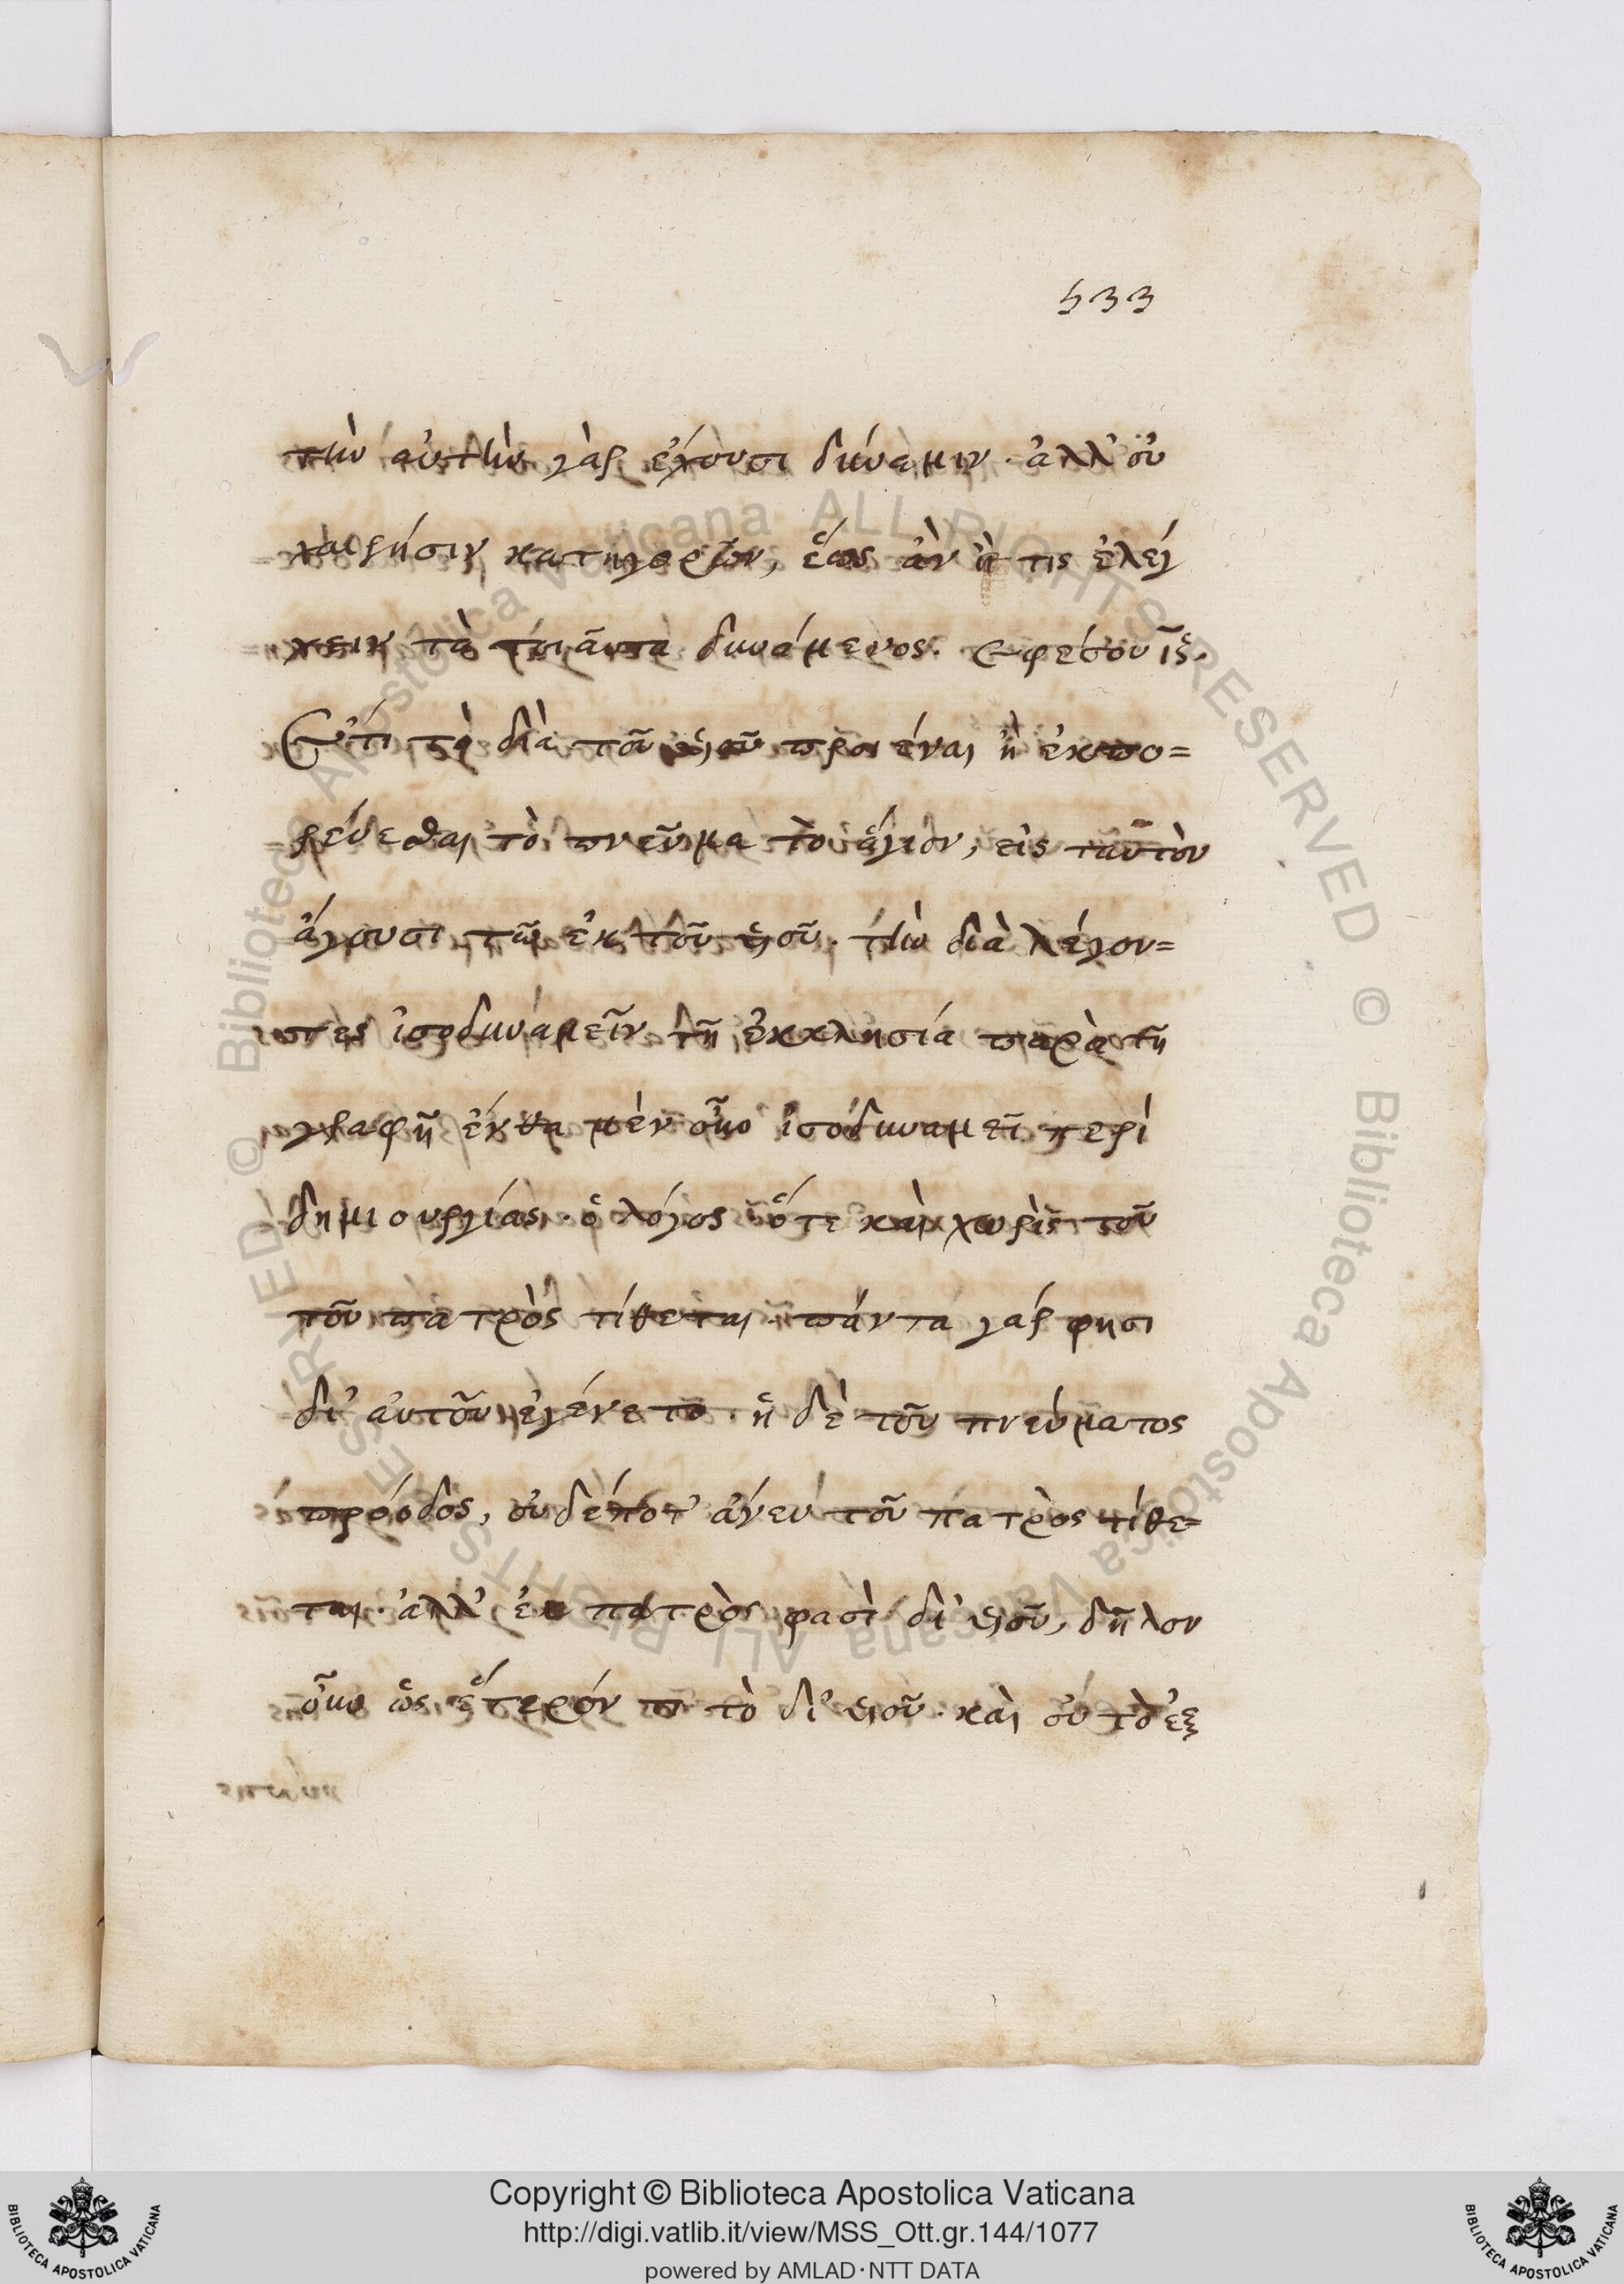 533
τὴν αὐτὴν γὰρ ἔχουσι δύναμιν. ἀλλ' οὐ
χαιρήσιν κατηγορῶν, ἕως ἂν ἦ τις ἐλέγ
χειν τὰ τοιαῦτα δυνάμενος. Ἐφέσου ις.
Ὅτι τὸ διὰ τοῦ υἱοῦ προϊέναι ἢ ἐκπο=
ρεύεσθαι τὸ πνεῦμα τὸ ἅγιον, εἰς ταὐτὸν
ἄγουσι τῶ ἐκ τοῦ υἱοῦ. τὴν διὰ λέγον=
τες ἰσοδυναμεῖν τῆ ἐκκλησία παρὰ τῆ
γραφῆ ἔνθα μὲν οὖν ἰσοδυναμεῖ περὶ
δημιουργίας. ὁ λόγος ὅτε καὶ χωρὶς τοῦ
τοῦ πατρὸς τίθεται. πάντα γάρ φησι
δι' αὐτοῦ ἐγένετο. ἡ δὲ τοῦ πνεύματος
πρόοδος, οὐδέποτ' ἄνευ τοῦ πατρὸς τίθε=
ται. ἀλλ' ἐκ πατρὸς φασὶ δι' υἱοῦ, δῆλον
οὖν ὡς ἕτερόν τι τὸ δι' υἱοῦ. καὶ οὐ τὸ ἐξ
Copyright © Biblioteca Apostolica Vaticana
http://digi.vatlib.it/view/MSS_Ott.gr.144/1077
powered by AMLAD·NTT DATA
BIBLIOTECA APOSTOLICA VATICANA
BIBLIOTECA APOSTOLICA VATICANA
© Biblioteca Apostolica Vaticana ALL RIGHTS RESERVED
© Biblioteca Apostolica Vaticana ALL RIGHTS RESERVED